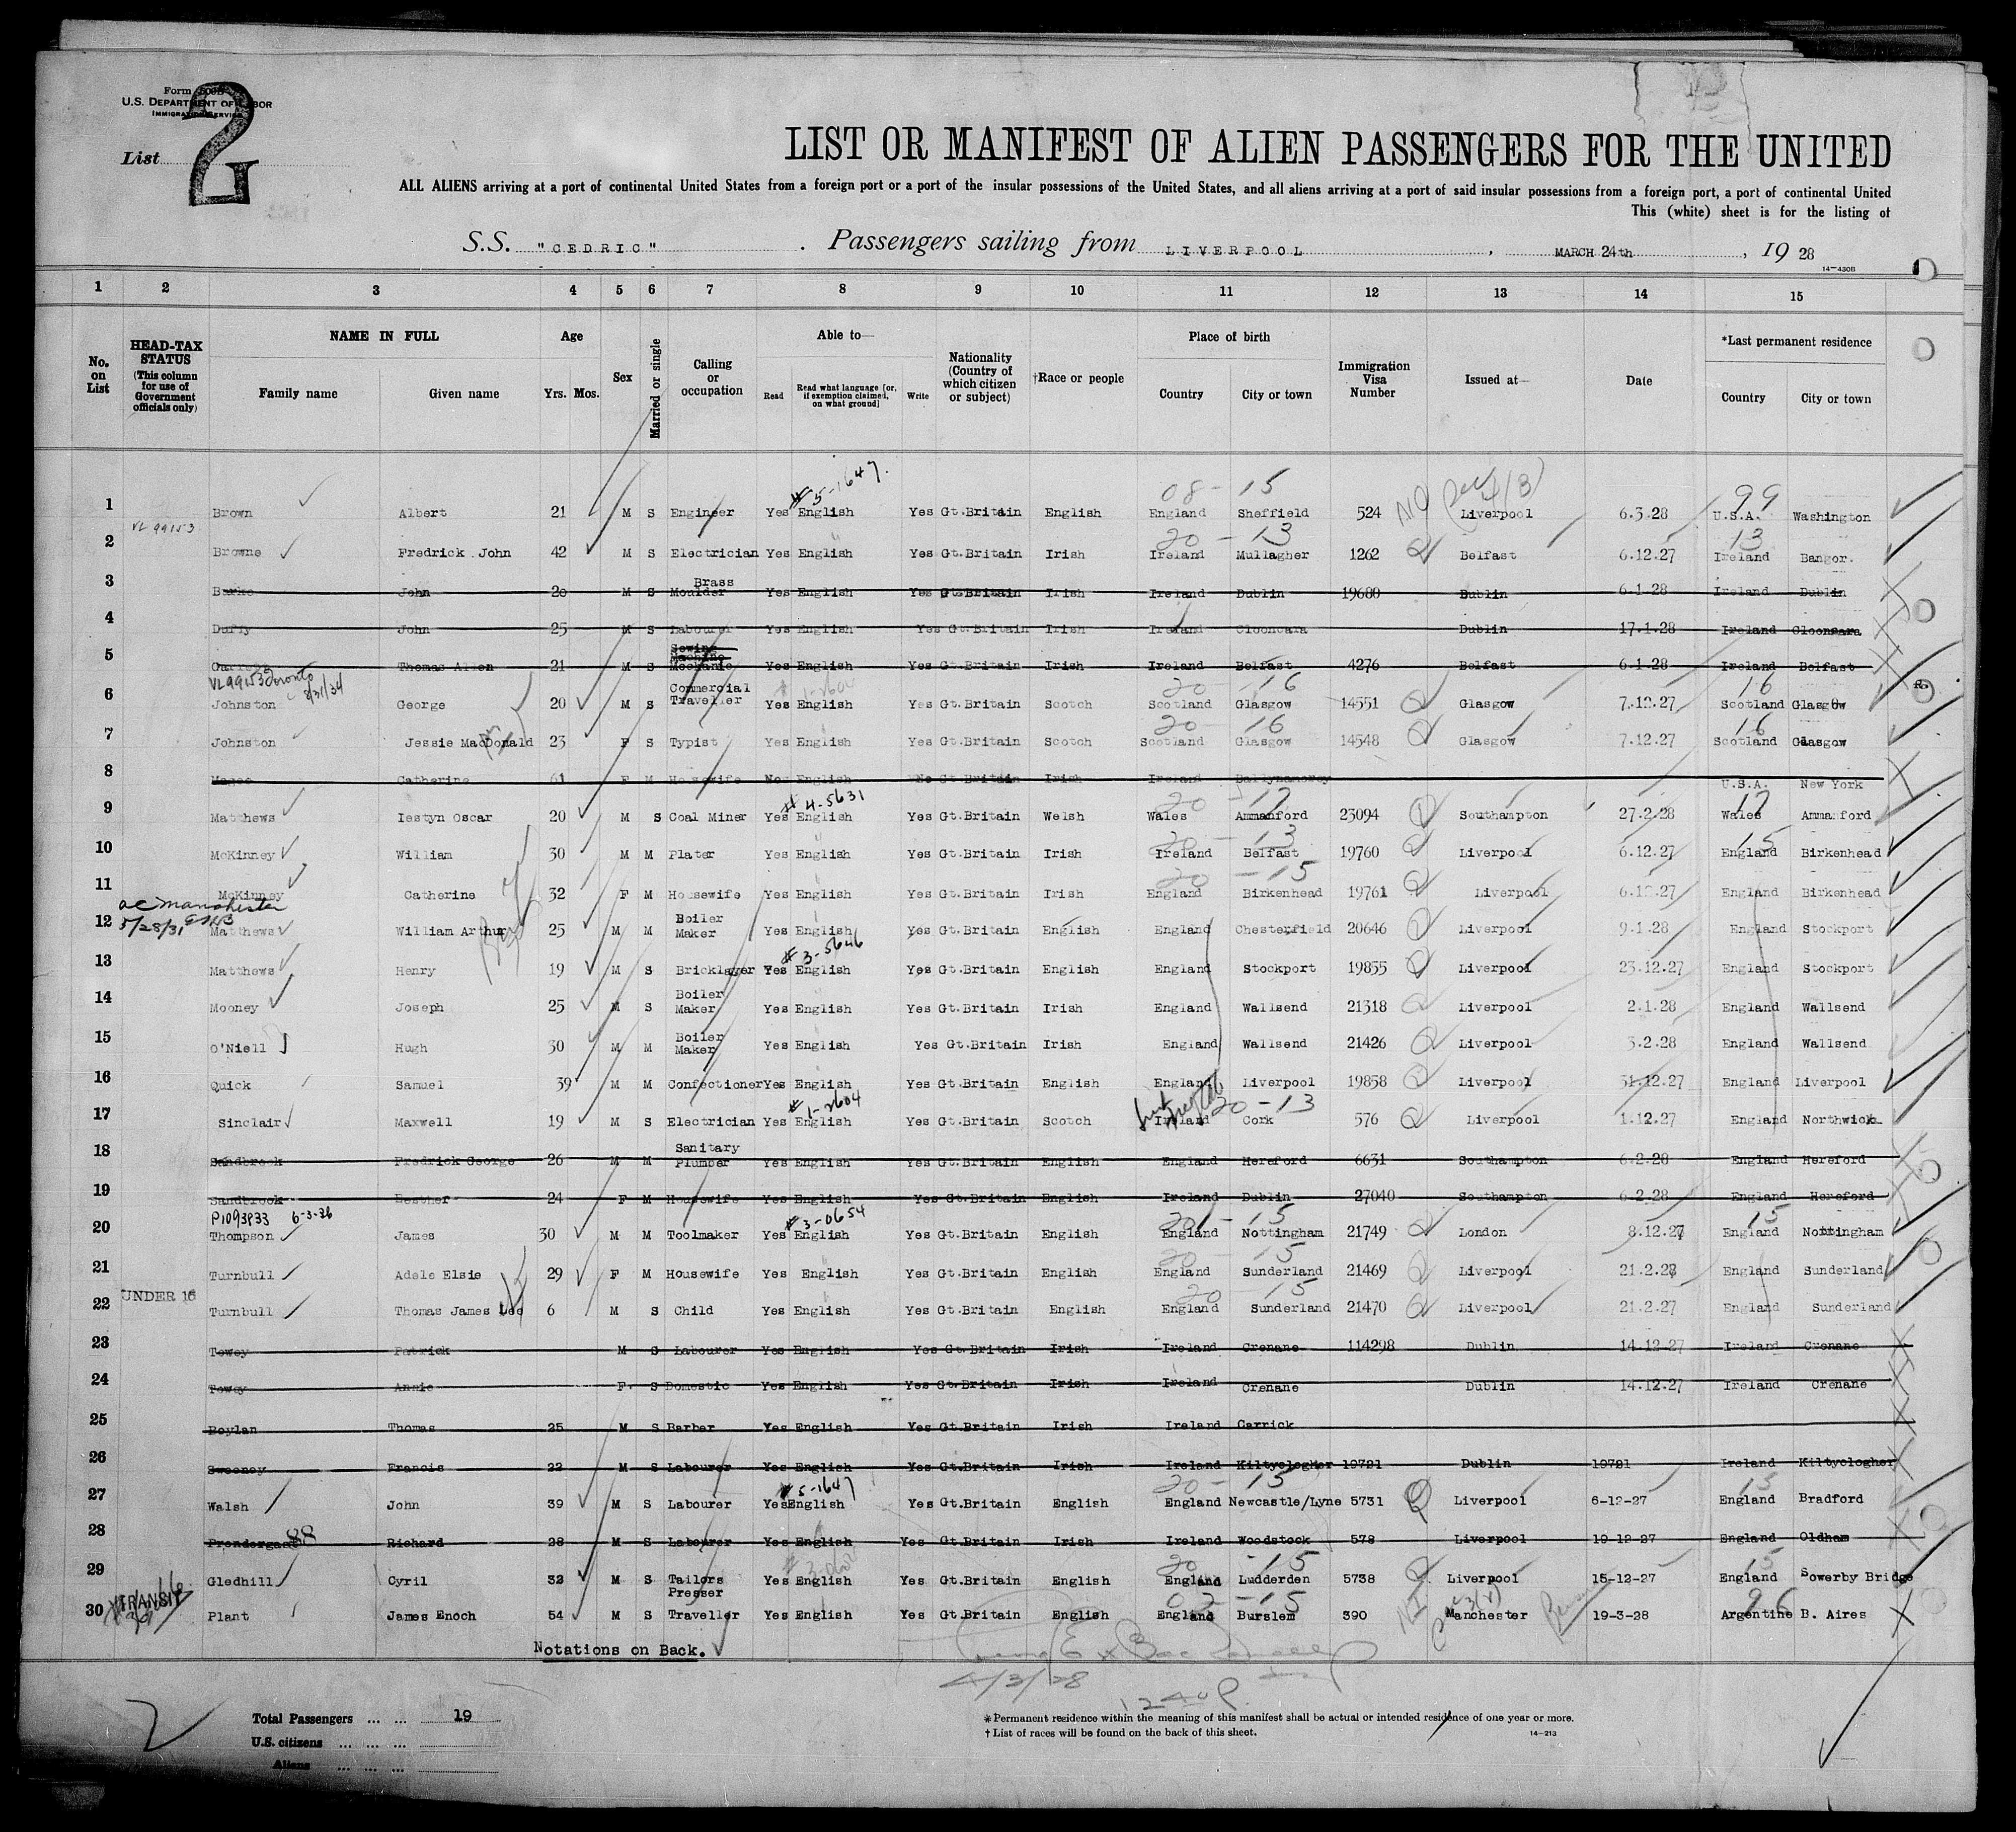 Form 500B
U.S. DEPARTMENT OF LABOR
IMMIGRATION SERVICE
List 2
LIST OR MANIFEST OF ALIEN PASSENGERS FOR THE UNITED
ALL ALIENS arriving at a port of continental United States from a foreign port or a port of the insular possessions of the United States, and all aliens arriving at a port of said insular possessions from a foreign port, a port of continental United
This (white) sheet is for the listing of
S.S. "CEDRIC" . Passengers sailing from LIVERPOOL , MARCH 24th , 1928
14—430B
1 2 3 4 5 6 7 8 9 10 11 12 13 14 15
No. on List
HEAD-TAX STATUS (This column for use of Government officials only)
NAME IN FULL
Family name Given name
Age
Yrs. Mos.
Sex
Married or single
Calling or occupation
Able to—
Read Read what language [or, if exemption claimed, on what ground] Write
Nationality (Country of which citizen or subject)
†Race or people
Place of birth
Country City or town
Immigration Visa Number
Issued at—
Date
*Last permanent residence
Country City or town
#5-1647. 08 - 15 99
1 Brown Albert 21 M S Engineer Yes English Yes Gt.Britain English England Sheffield 524 Liverpool 6.3.28 U.S.A. Washington
VL 99153 20 - 13 13
2 Browne Fredrick John 42 M S Electrician Yes English Yes Gt.Britain Irish Ireland Mullagher 1262 Belfast 6.12.27 Ireland Bangor.
3 Burke John 20 M S Brass Moulder Yes English Yes Gt.Britain Irish Ireland Dublin 19680 Dublin 6.1.28 Ireland Dublin
4 Duffy John 25 M S Labourer Yes English Yes Gt.Britain Irish Ireland Clooncara Dublin 17.1.28 Ireland Clooncara
5 Thomas Allen 21 M S Sewing Machine Mechanic Yes English Yes Gt.Britain Irish Ireland Belfast 4276 Belfast 6.1.28 Ireland Belfast
VL99153 Toronto 8/31/34 20 - 16 16
6 Johnston George 20 M S Commercial Traveller Yes English Yes Gt.Britain Scotch Scotland Glasgow 14551 Glasgow 7.12.27 Scotland Glasgow
20 16 16
7 Johnston Jessie MacDonald 23 F S Typist Yes English Yes Gt.Britain Scotch Scotland Glasgow 14548 Glasgow 7.12.27 Scotland Glasgow
8 Magee Catherine 61 F M Housewife No English No Gt.Britain Irish Ireland U.S.A. New York
#4-5631 20 - 17 17
9 Matthews Iestyn Oscar 20 M S Coal Miner Yes English Yes Gt.Britain Welsh Wales Ammanford 23094 Southampton 27.2.28 Wales Ammanford
20 - 13 15
10 McKinney William 30 M M Plater Yes English Yes Gt.Britain Irish Ireland Belfast 19760 Liverpool 6.12.27 England Birkenhead
20 - 15
11 McKinney Catherine 32 F M Housewife Yes English Yes Gt.Britain Irish England Birkenhead 19761 Liverpool 6.12.27 England Birkenhead
Manchester 5/28/31
12 Matthews William Arthur 25 M M Boiler Maker Yes English Yes Gt.Britain English England Chesterfield 20646 Liverpool 9.1.28 England Stockport
#3-5646
13 Matthews Henry 19 M S Bricklayer Yes English Yes Gt.Britain English England Stockport 19855 Liverpool 23.12.27 England Stockport
14 Mooney Joseph 25 M S Boiler Maker Yes English Yes Gt.Britain Irish England Wallsend 21318 Liverpool 2.1.28 England Wallsend
15 O'Niell Hugh 30 M M Boiler Maker Yes English Yes Gt.Britain Irish England Wallsend 21426 Liverpool 3.2.28 England Wallsend
16 Quick Samuel 39 M M Confectioner Yes English Yes Gt.Britain English England Liverpool 19858 Liverpool 31.12.27 England Liverpool
#1-2604 20 - 13
17 Sinclair Maxwell 19 M S Electrician Yes English Yes Gt.Britain Scotch Ireland Cork 576 Liverpool 1.12.27 England Northwick
18 Sandbrook Fredrick George 26 M M Sanitary Plumber Yes English Yes Gt.Britain English England Hereford 6631 Southampton 6.2.28 England Hereford
19 Sandbrook Eesther 24 F M Housewife Yes English Yes Gt.Britain English Ireland Dublin 27040 Southampton 6.2.28 England Hereford
P1093933 6-3-36 #3-0654 20 - 15 15
20 Thompson James 30 M M Toolmaker Yes English Yes Gt.Britain English England Nottingham 21749 London 8.12.27 England Nottingham
20 - 15
21 Turnbull Adele Elsie 29 F M Housewife Yes English Yes Gt.Britain English England Sunderland 21469 Liverpool 21.2.28 England Sunderland
20 - 15
22 UNDER 16 Turnbull Thomas James Lee 6 M S Child Yes English Yes Gt.Britain English England Sunderland 21470 Liverpool 21.2.27 England Sunderland
23 Towey Patrick M S Labourer Yes English Yes Gt.Britain Irish Ireland Crenane 114298 Dublin 14.12.27 Ireland Crenane
24 Towey Annie F. S Domestic Yes English Yes Gt.Britain Irish Ireland Crenane Dublin 14.12.27 Ireland Crenane
25 Boylan Thomas 25 M S Barber Yes English Yes Gt.Britain Irish Ireland Carrick
26 Sweeney Francis 22 M S Labourer Yes English Yes Gt.Britain Irish Ireland Kiltyclogher 19721 Dublin 19721 Ireland Kiltyclogher
#5-1647 20 - 15 15
27 Walsh John 39 M S Labourer Yes English Yes Gt.Britain English England Newcastle/Lyne 5731 Liverpool 6-12-27 England Bradford
28 Prendergast 88 Richard 28 M S Labourer Yes English Yes Gt.Britain Irish Ireland Woodstock 578 Liverpool 19-12-27 England Oldham
20 - 15 15
29 Gledhill Cyril 32 M S Tailors Presser Yes English Yes Gt.Britain English England Ludderden 5738 Liverpool 15-12-27 England Sowerby Bridge
02 - 15 96
30 TRANSIT Plant James Enoch 54 M S Traveller Yes English Yes Gt.Britain English England Burslem 390 Manchester 19-3-28 Argentine B. Aires
Notations on Back.
4/3/28
1240P.
Total Passengers ... ... 19
U.S. citizens ... ... ...
Aliens ... ... ...
* Permanent residence within the meaning of this manifest shall be actual or intended residence of one year or more.
† List of races will be found on the back of this sheet.
14—213